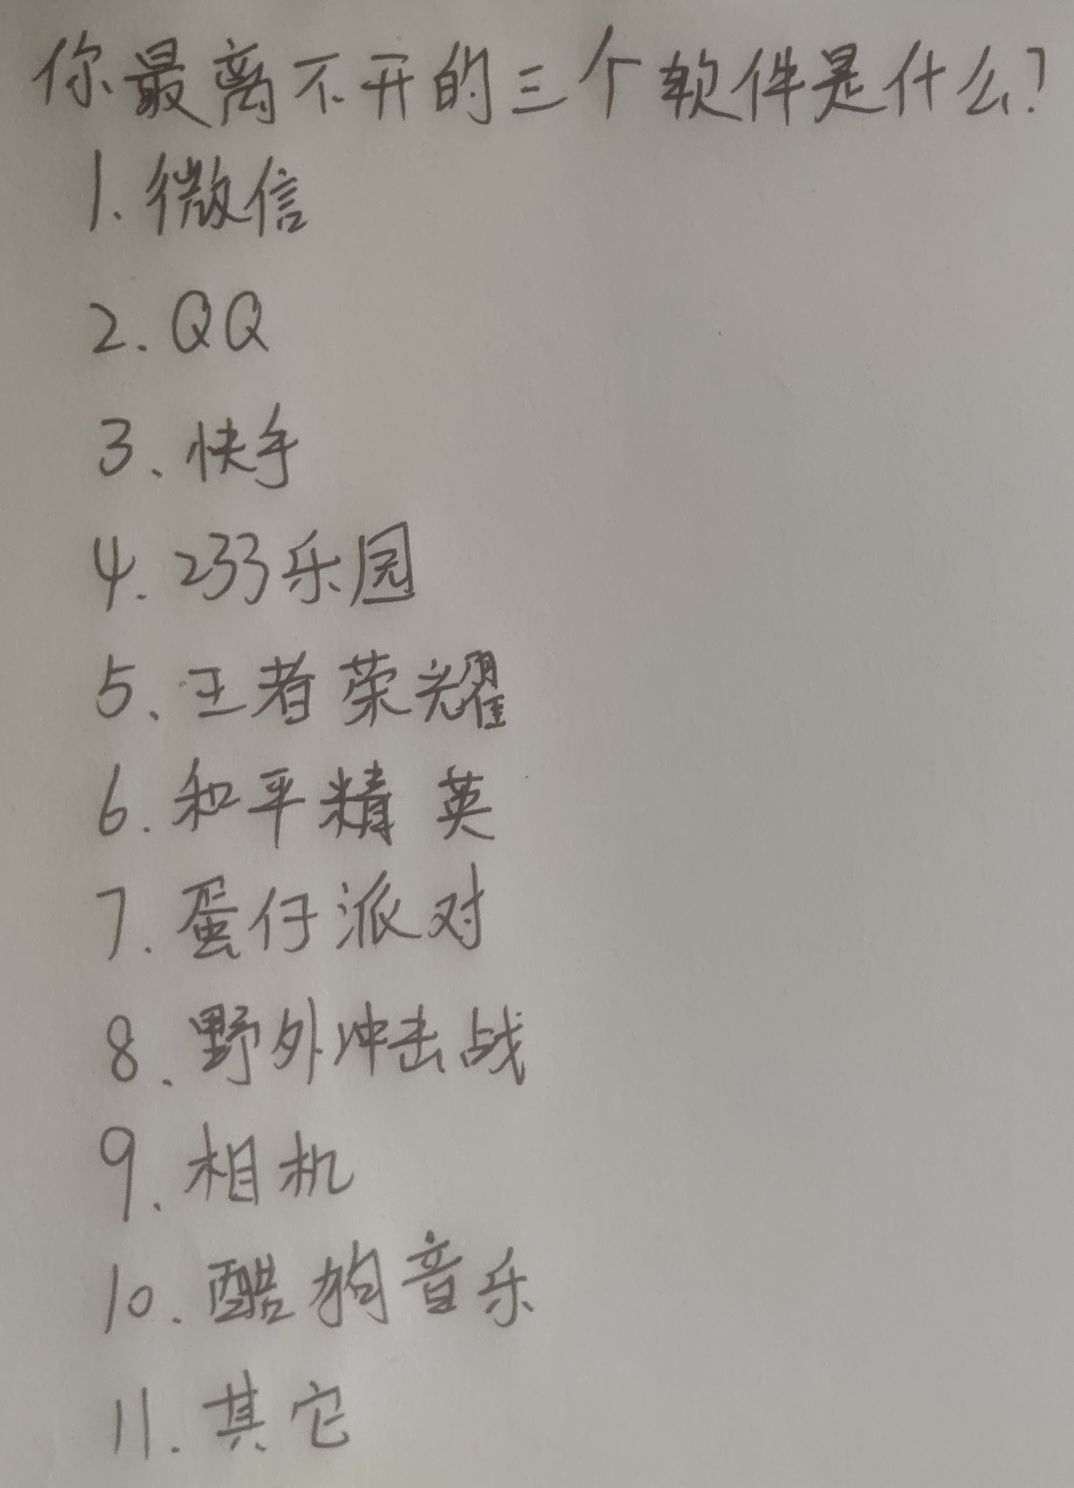 你最离不开的三个软件是什么?
1.微信
2.QQ
3、快手
4.233乐园
5、王者荣耀
6.和平精英
7.蛋仔派对
8、野外冲击战
9.相机
10.酷狗音乐
11.其它